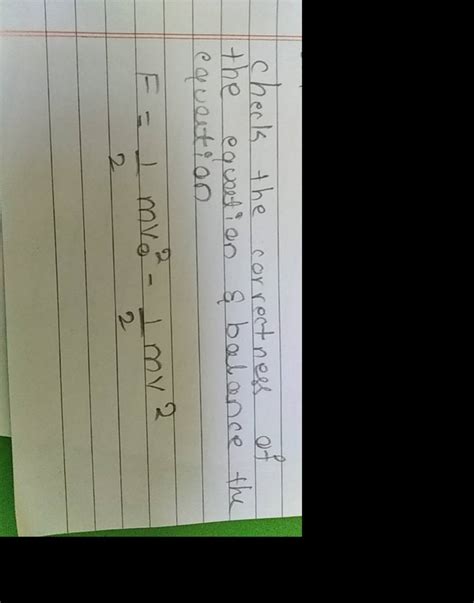 check the correctness of
the equation & balance the
equation
F = 1/2 mv₀² - 1/2 mv²